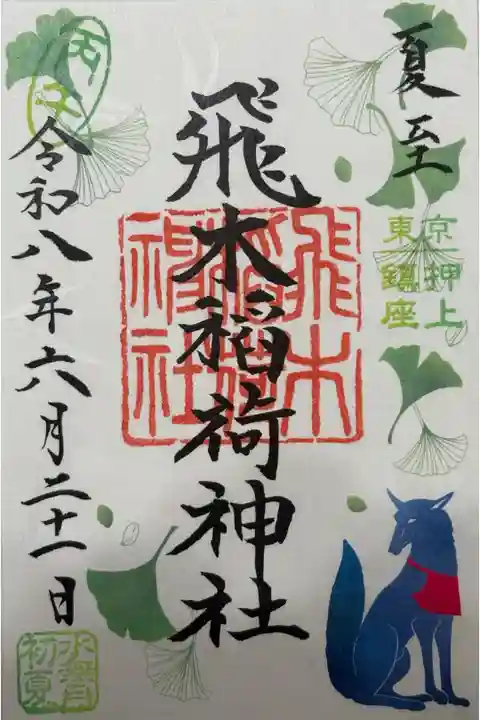 夏至
東京押上
鎮座
飛木稲荷神社
飛木
稲荷
神社
丙午
令和八年六月二十一日
水無月
初夏